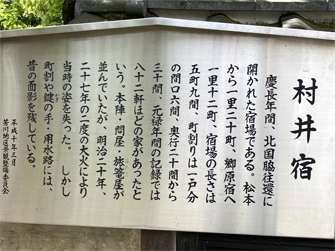 村井宿
慶長年間、北国脇往還に
開かれた宿場である。松本
から一里二十町、郷原宿へ
一里十二町、宿場の長さは
五町九間、町割りは一戸分
の間口六間、奥行二十間から
三十間、元禄年間の記録では
八十二軒ほどの家があったと
いう。本陣・問屋・旅篭屋が
並んでいたが、明治二十年、
二十七年の二度の大火により
当時の姿を失った。しかし
町割や鍵の手・用水路は、
昔の面影を残している。
平成十年三月
芳川地区景観整備委員会